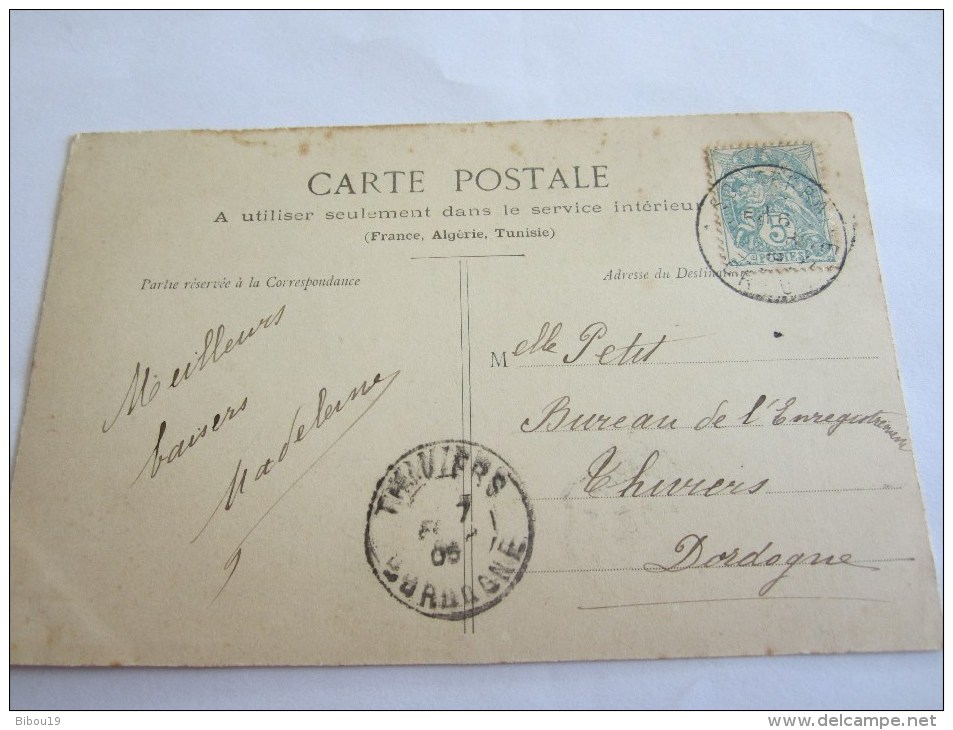 CARTE POSTALE
A utiliser seulement dans le service intérieur
(France, Algérie, Tunisie)
Partie réservée à la Correspondance
Adresse du Destina
Meilleurs
baisers
Madeleine
Melle Petit
Bureau de l'Enregistrement
Thiviers
Dordogne
THIVIERS
7
05
DORDOGNE
5
POSTES
Bibou19
www.delcampe.net